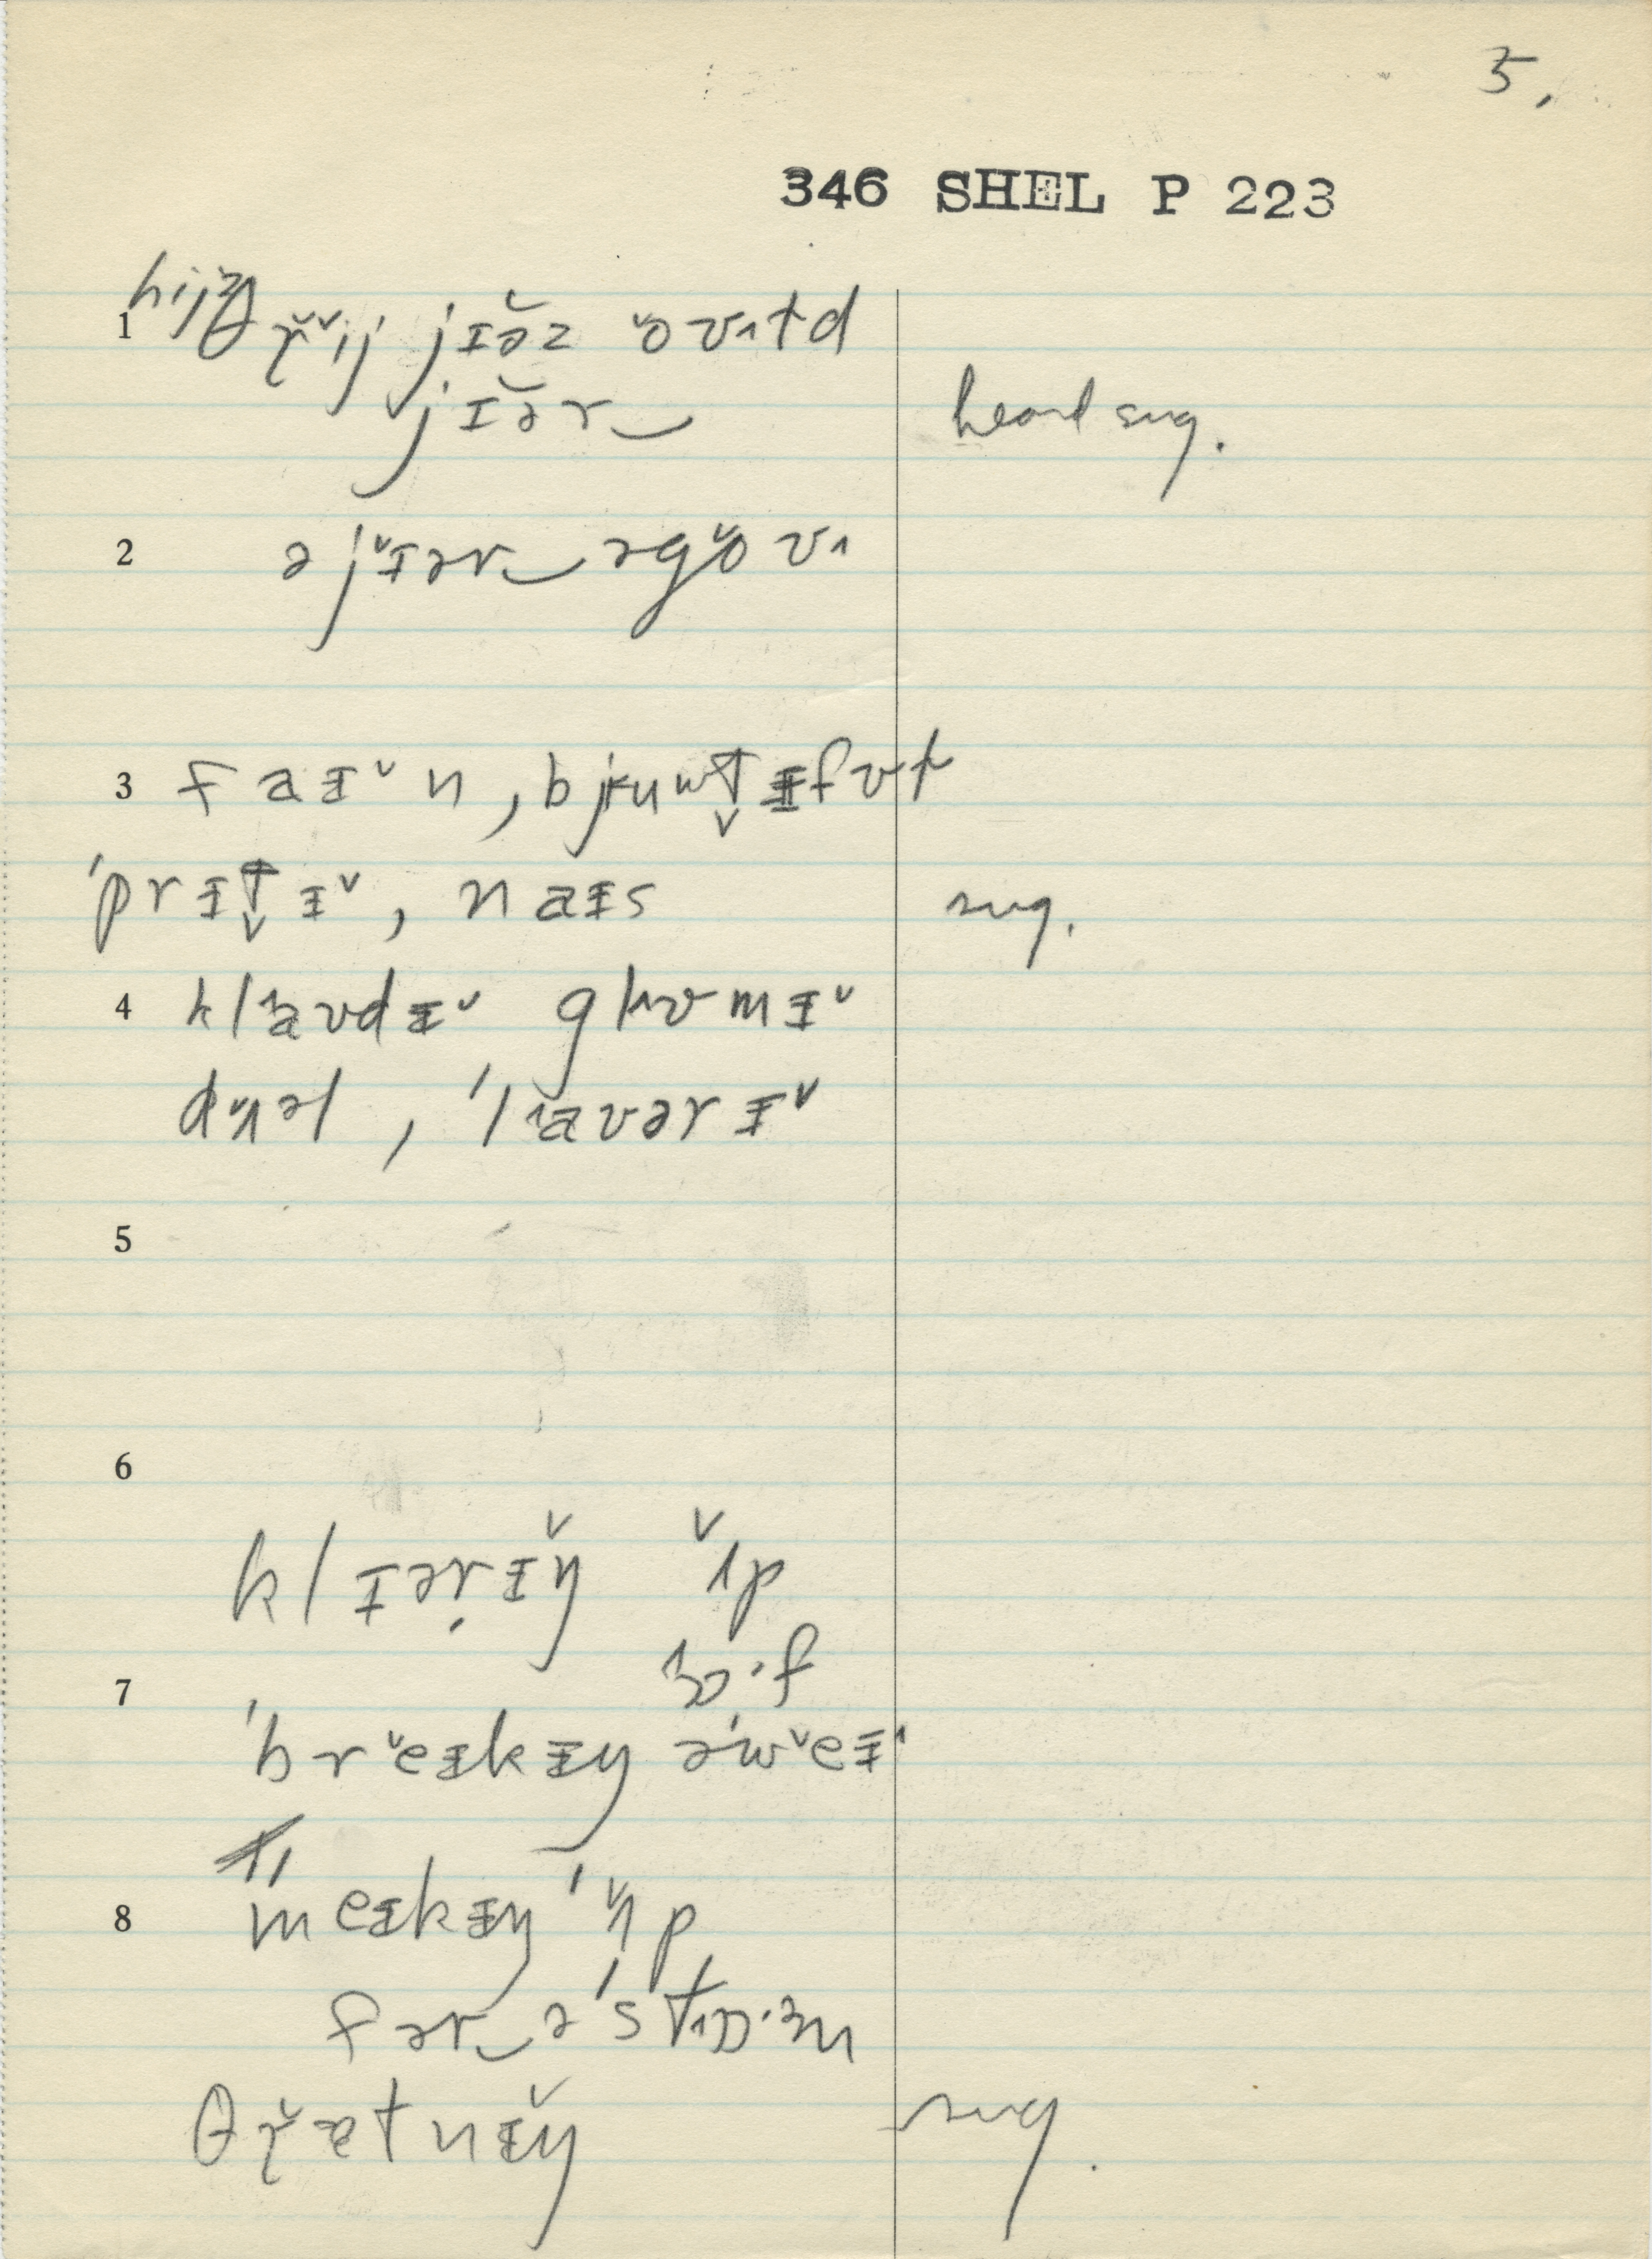 5,
346 SHEL P 223
1 hijz θr̆ĭj jɪə̆z ŏʊɪtd
jɪə̆r‿ heard sug.
2 ə jɪ̆ər‿əgŏʊ
3 faɪ̌n, bjʉut̬ɪfʊt
'prɪt̬ɪ̌, naɪs sug.
4 klaʊdɪ̌ glʊmɪ̌
dʌ̆əl, 'laʊərɪ̌
5
6
klɪər̩ɪ̆ŋ ʌ̆p
7 ɔ·f
'brĕɪkɪŋ ə'wĕɪ
8 meɪkɪŋ 'ʌ̆p
fər‿ə'stɔ·ɜm
θr̆ætnɪ̆ŋ sug.